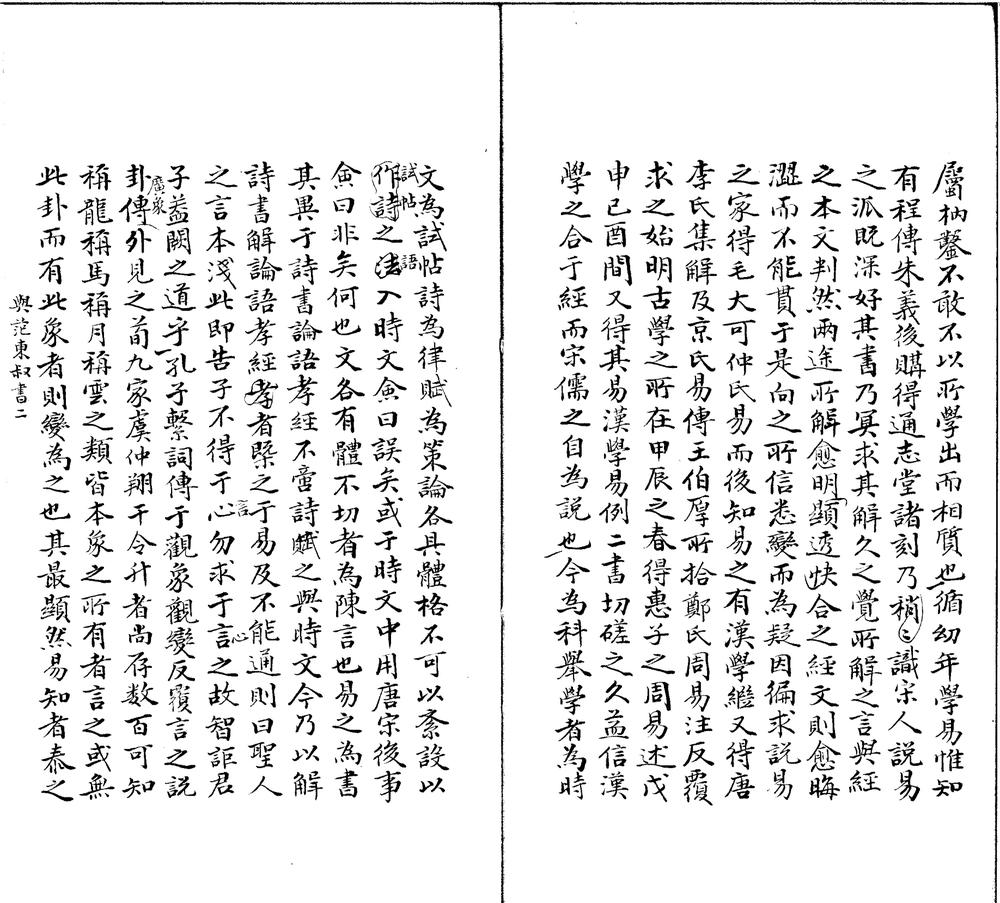 屬枘鑿不敢不以所學出而相質也循幼年學易惟知
有程傳朱義後購得通志堂諸刻乃稍〻識宋人說易
之派既深好其書乃冥求其解久之覺所解之言與經
之本文判然兩途所解愈明顯透快合之經文則愈晦
澀而不能貫于是向之所信悉變而為疑因徧求說易
之家得毛大可仲氏易而後知易之有漢學繼又得唐
李氏集解及京氏易傳王伯厚所拾鄭氏周易注反覆
求之始明古學之所在甲辰之春得惠子之周易述戊
申己酉間又得其易漢學易例二書切磋之久益信漢
學之合于經而宋儒之自為說也今為科舉學者為時
文為試帖詩為律賦為策論各具體格不可以紊設以
試帖詩語
作詩之法入時文僉曰誤矣或于時文中用唐宋後事
僉曰非矣何也文各有體不切者為陳言也易之為書
其異于詩書論語孝經不啻詩賦之與時文今乃以解
詩書解論語孝經者槩之于易及不能通則曰聖人
之言本淺此即告子不得于心勿求于言之故智詎君
言
心
子益闕之道乎孔子繫詞傳于觀象觀變反覆言之說
卦傳外見之荀九家虞仲翔干令升者尚存数百可知
廣象
稱龍稱馬稱月稱雲之類皆本象之所有者言之或無
此卦而有此象者則變為之也其最顯然易知者泰之
與范東叔書二